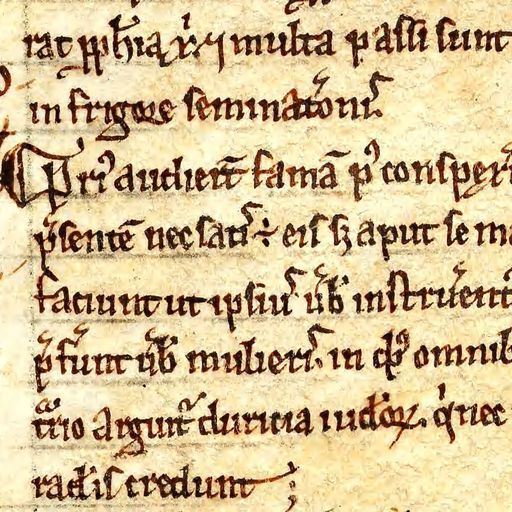 rat ꝓph̄ia xx⁊ multa passi sunt
in frigore seminatōnis
Pri᷒ audierūt famā p᷒ consper
p̄sentē nec satis ÷ eis sʒ aput se ma
faciunt ut ipsius ūb̄ instruent᷒
p̄ferunt ūb̄ mulieris in qb᷒ omnib
t̄rio arguit᷒ duricia iudeoꝝ q̇ nec
radēis credunt